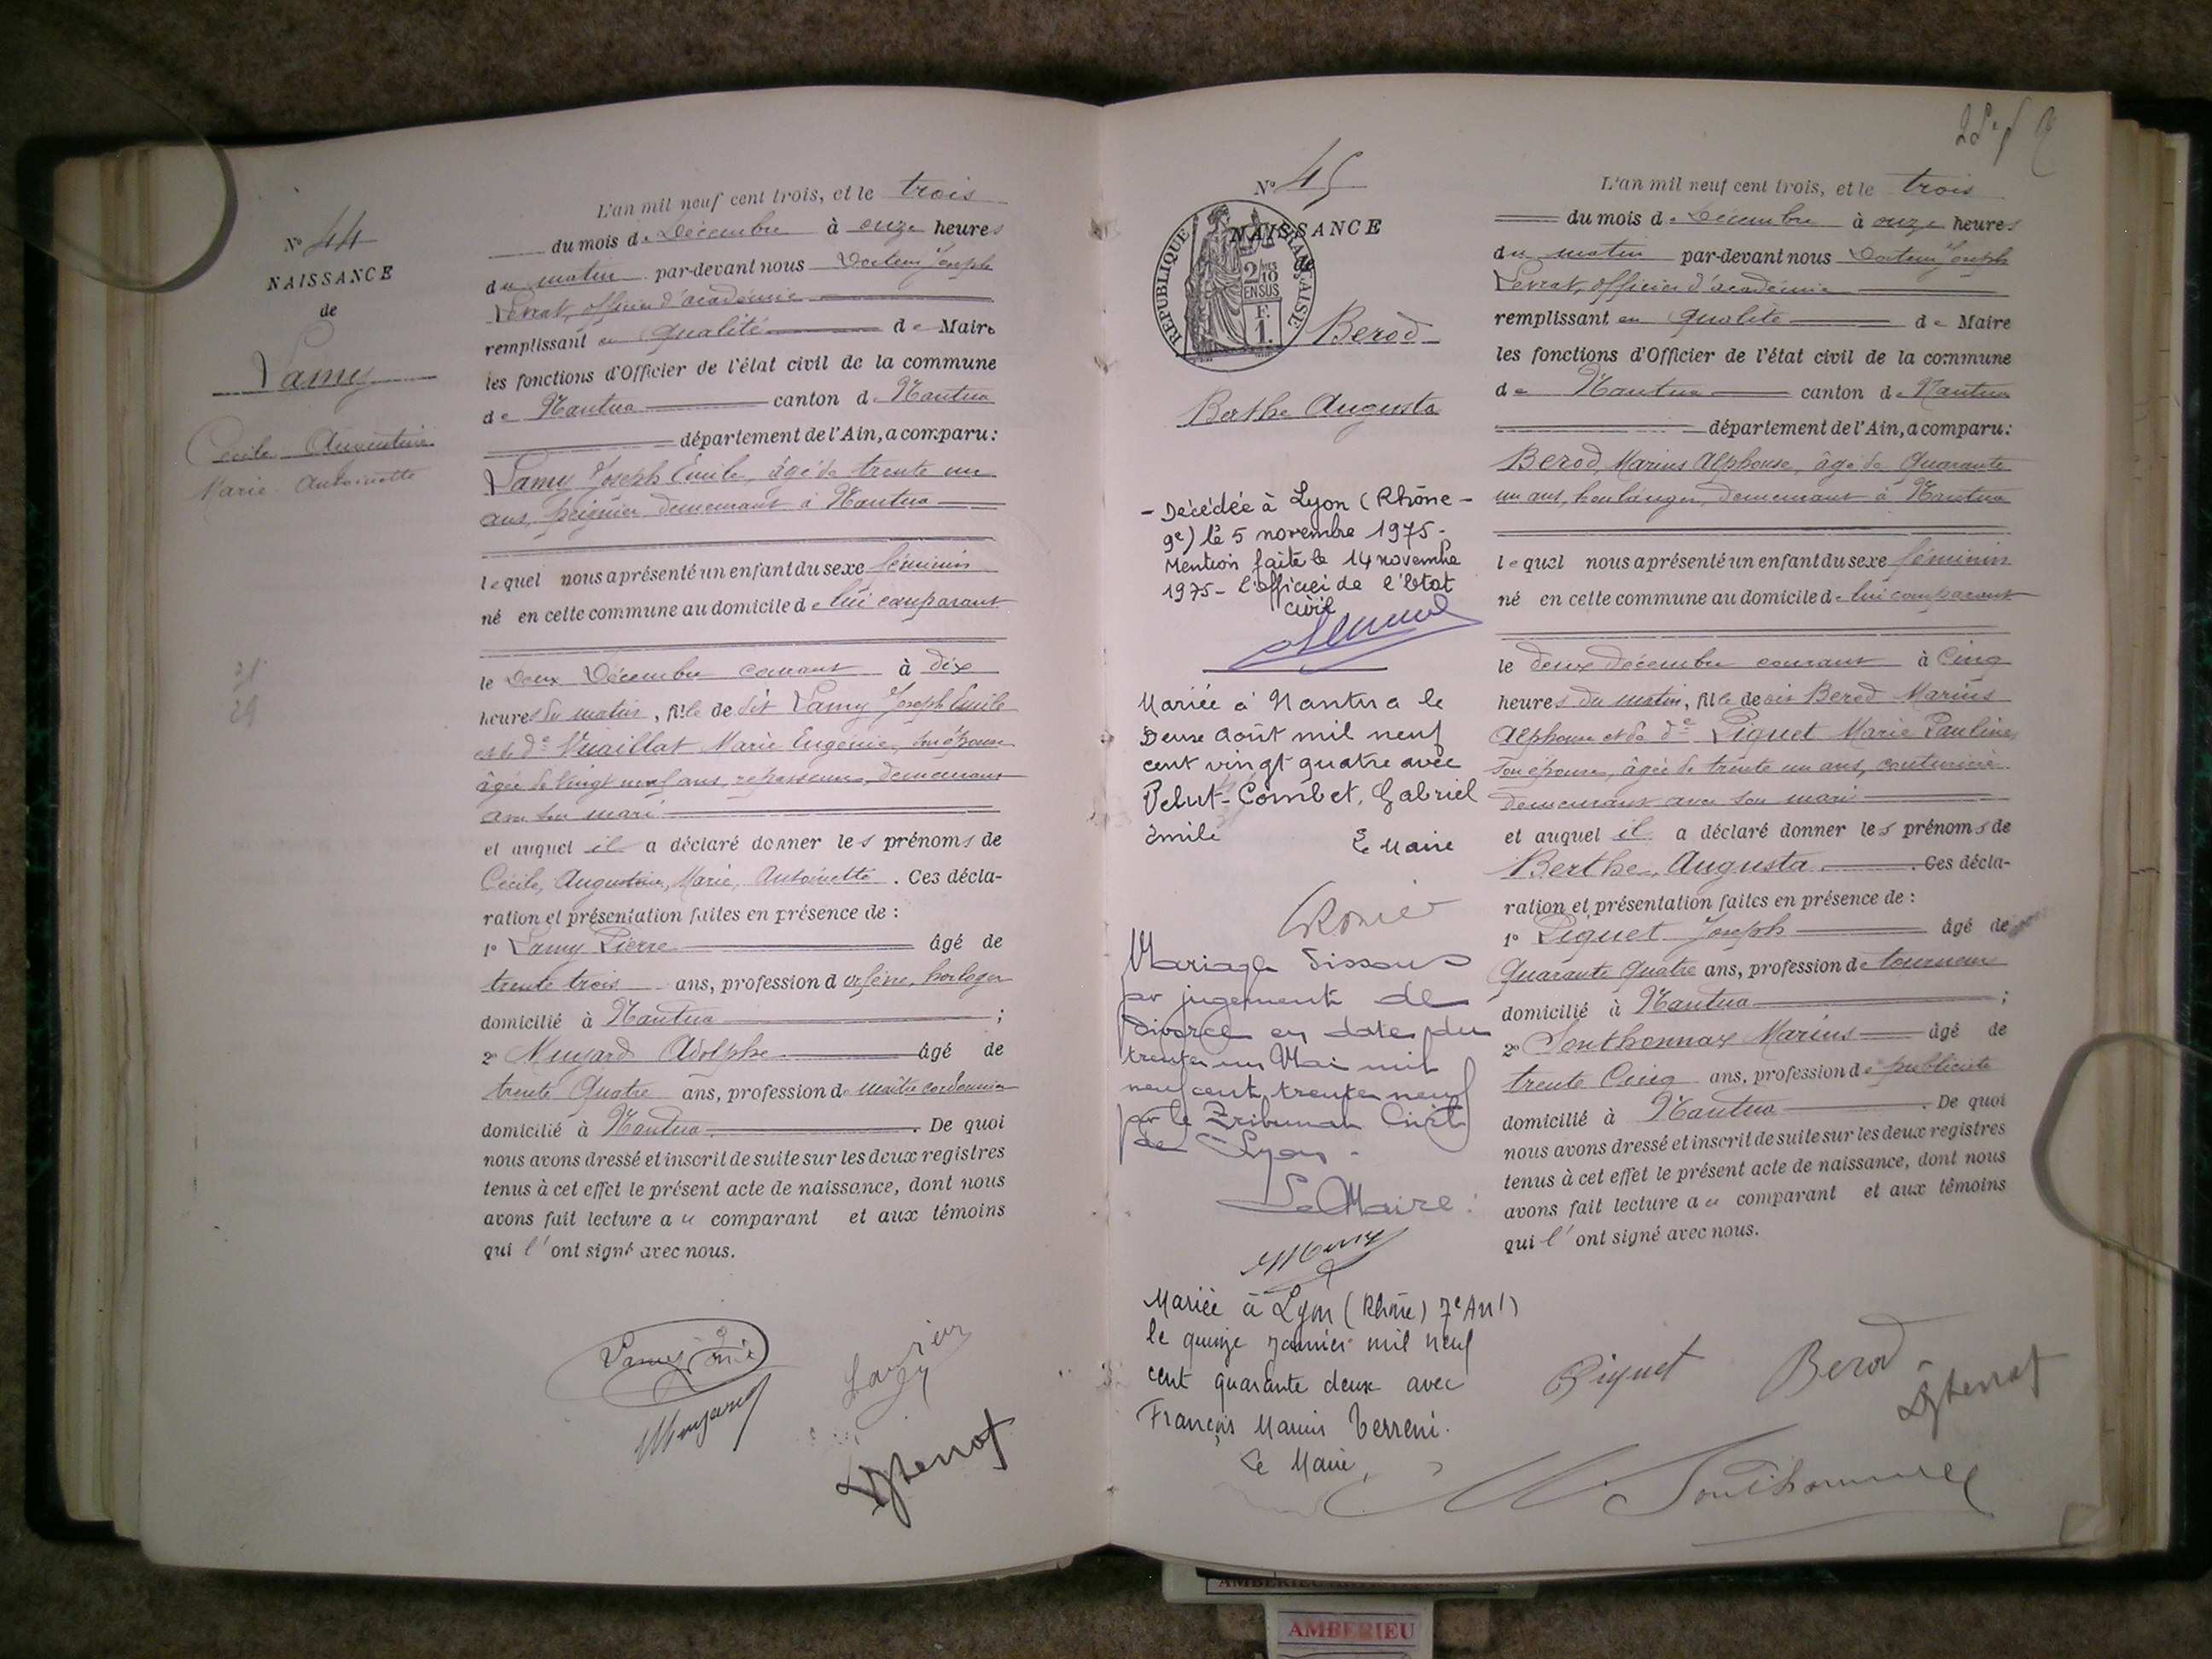 N° 44
NAISSANCE
de
Lamy
Cécile Augustine
Marie Antoinette
L'an mil neuf cent trois, et le trois
du mois de Décembre à onze heures
du matin par-devant nous Docteur Joseph
Levrat, officier d'académie
remplissant en qualité de Maire
les fonctions d'Officier de l'état civil de la commune
de Nantua canton de Nantua
département de l'Ain, a comparu:
Lamy Joseph Emile, âgé de trente un
ans, peignier demeurant à Nantua
lequel nous a présenté un enfant du sexe féminin
né en cette commune au domicile de lui comparant
le Deux Décembre courant à dix
heures du matin, fille de dit Lamy Joseph Emile
et de de Vuaillat Marie Eugénie, son épouse
âgée de vingt neuf ans, repasseuse, demeurant
avec son mari
et auquel il a déclaré donner les prénoms de
Cécile, Augustine, Marie, Antoinette. Ces décla-
ration et présentation faites en présence de :
1° Lamy Pierre âgé de
trente trois ans, profession d'orfèvre, horloger
domicilié à Nantua ;
2° Musard Adolphe âgé de
trente Quatre ans, profession de maître cordonnier
domicilié à Nantua. De quoi
nous avons dressé et inscrit de suite sur les deux registres
tenus à cet effet le présent acte de naissance, dont nous
avons fait lecture au comparant et aux témoins
qui l'ont signé avec nous.
N° 45
NAISSANCE
RÉPUBLIQUE FRANÇAISE
2/10
EN SUS
F.
1.
Berod
Berthe Augusta
- Décédée à Lyon (Rhône -
9e) le 5 novembre 1975 -
Mention faite le 14 novembre
1975 - l'officier de l'Etat
civil
Mariée à Nantua le
Deux Août mil neuf
cent vingt quatre avec
Pelut-Combet, Gabriel
Emile
Le Maire
Mariage dissous
par jugement de
divorce en date du
trente un Mai mil
neuf cent trente neuf
par le Tribunal Civil
de Lyon -
Le Maire :
Mariée à Lyon (Rhône) 7e Arrt)
le quinze janvier mil neuf
cent quarante deux avec
François Marius Terreni.
Le Maire,
L'an mil neuf cent trois, et le trois
du mois de Décembre à onze heures
du matin par-devant nous Docteur Joseph
Levrat, officier d'académie
remplissant en qualité de Maire
les fonctions d'Officier de l'état civil de la commune
de Nantua canton de Nantua
département de l'Ain, a comparu:
Berod, Marius Alphonse, âgé de Quarante
un ans, boulanger, demeurant à Nantua
lequel nous a présenté un enfant du sexe féminin
né en cette commune au domicile de lui comparant
le deux décembre courant à Cinq
heures du matin, fille de dit Berod Marius
Alphonse et de de Piquet Marie Pauline
son épouse, âgée de trente un ans, couturière
demeurant avec son mari
et auquel il a déclaré donner les prénoms de
Berthe, Augusta. Ces décla-
ration et présentation faites en présence de :
1° Piquet Joseph âgé de
Quarante Quatre ans, profession de tourneur
domicilié à Nantua ;
2° Sonthonnax Marius âgé de
trente Cinq ans, profession de publiciste
domicilié à Nantua. De quoi
nous avons dressé et inscrit de suite sur les deux registres
tenus à cet effet le présent acte de naissance, dont nous
avons fait lecture au comparant et aux témoins
qui l'ont signé avec nous.
Piquet Berod
AMBERIEU